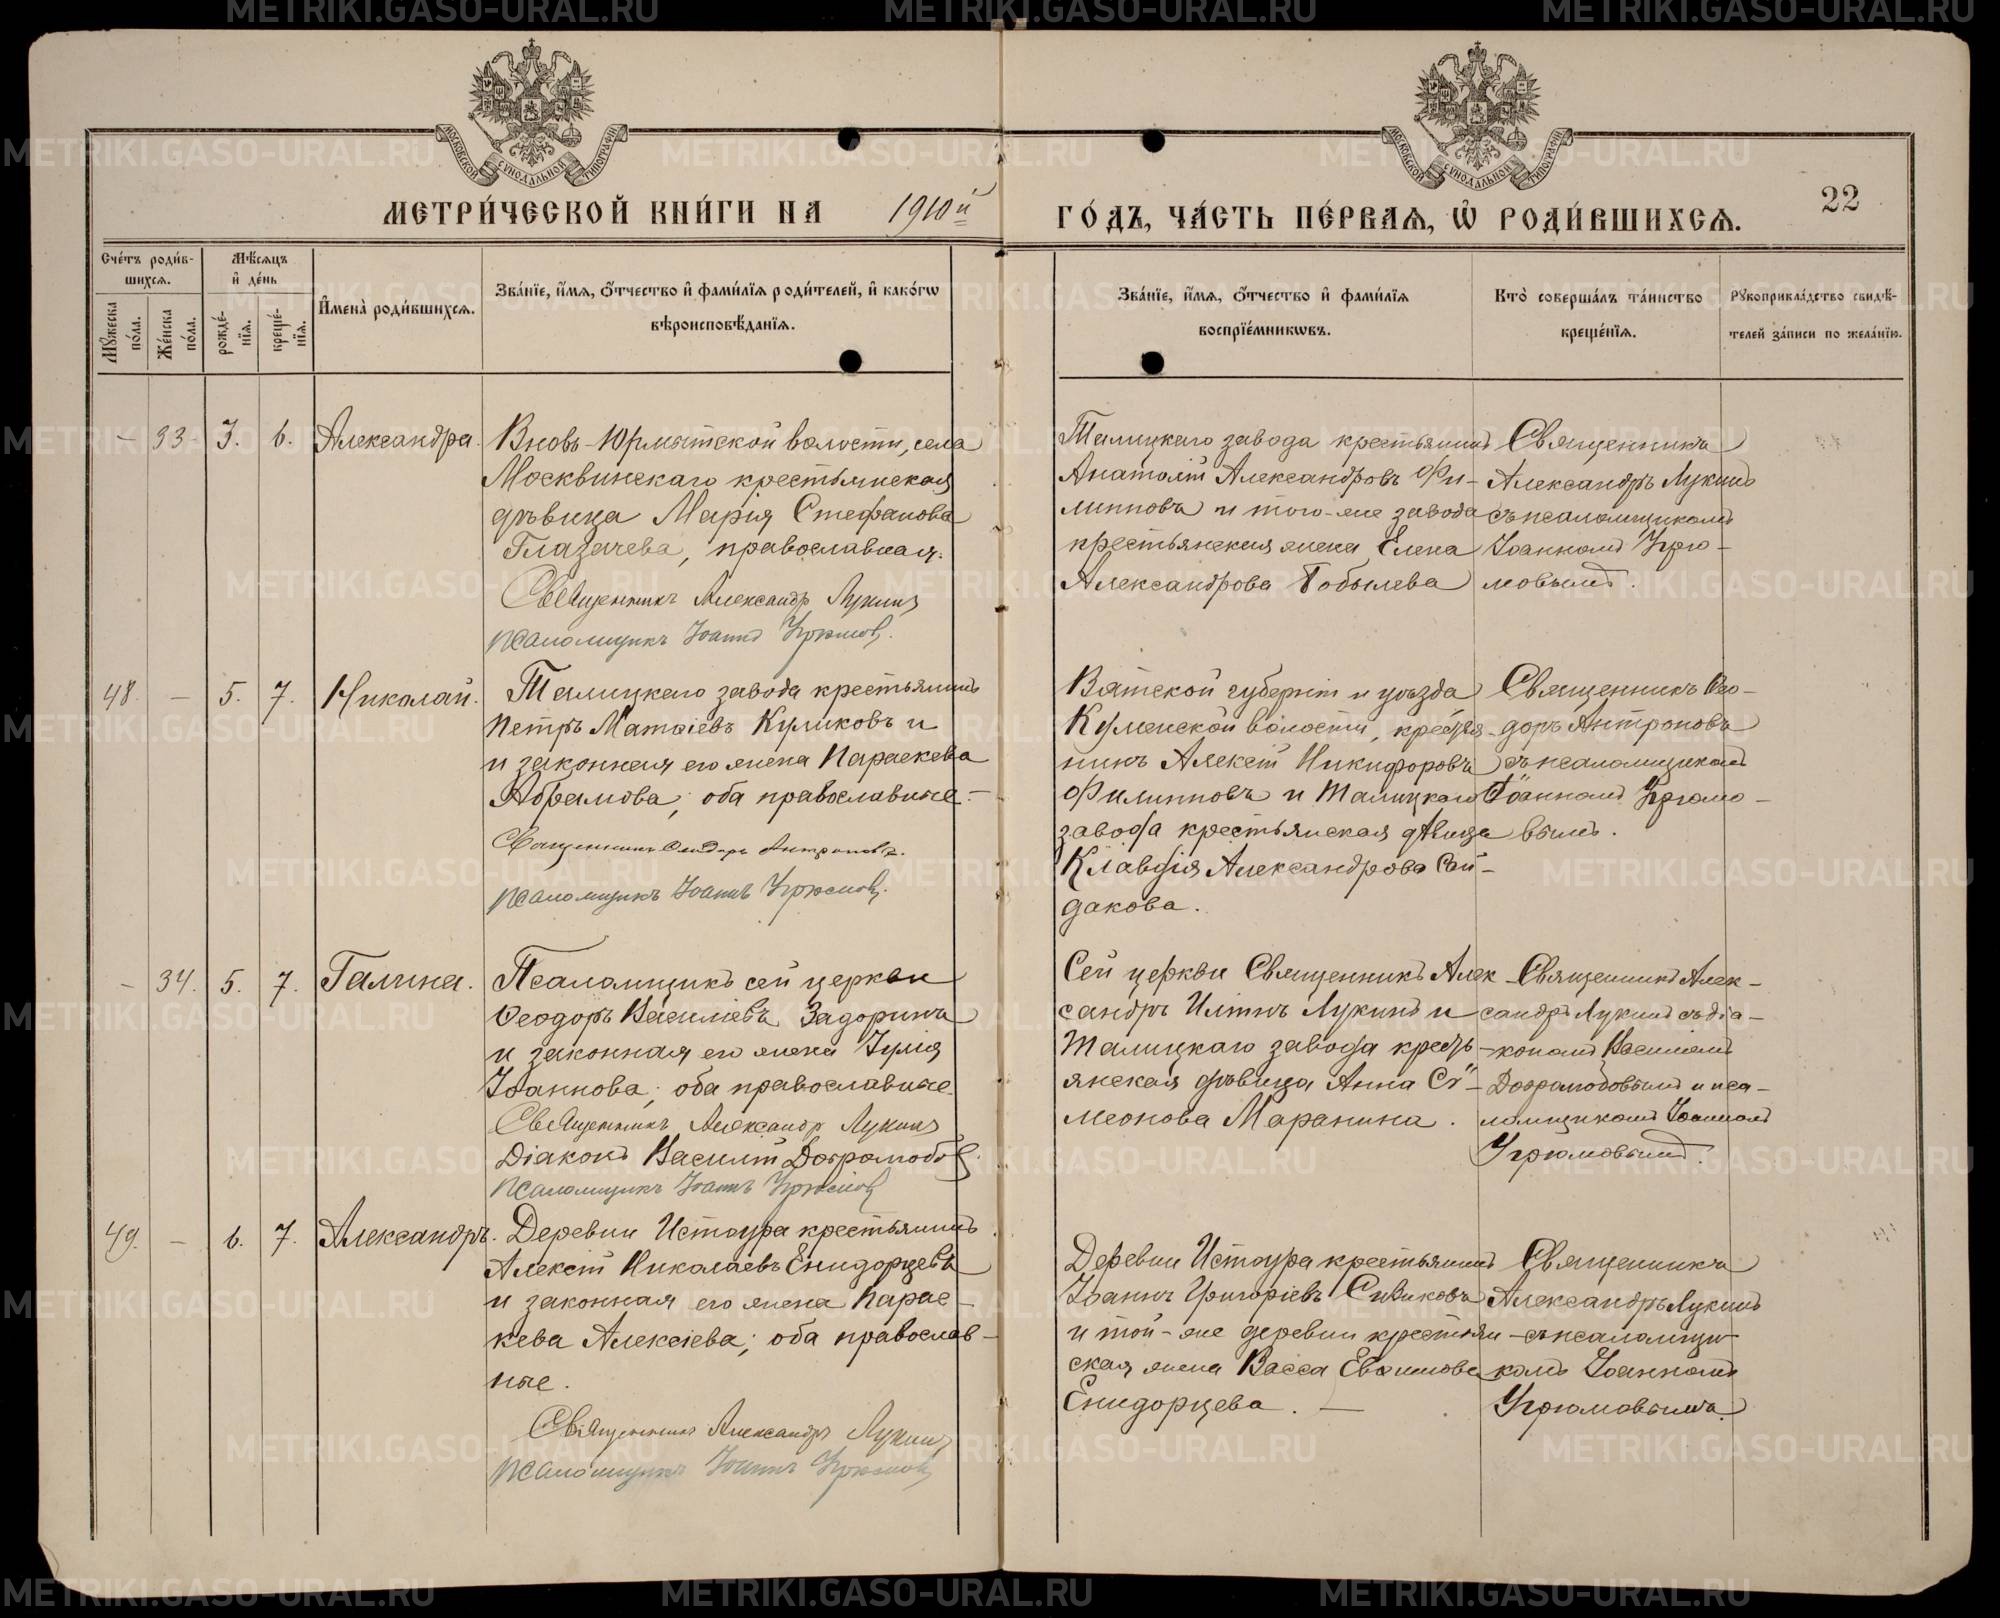 МЕТРИ́ЧЕСКОЙ КНИ́ГИ НА 1910й ГО́ДЪ, ЧА́СТЬ ПЕ́РВАѦ, Ѡ҆ РОДИ́ВШИХСѦ.
22
Сче́тъ роди́в-
шихсѧ.
Мѣ́сѧцъ
и҆ де́нь
Мꙋ́жеска
по́ла.
Же́нска
по́ла.
рожде́-
нїѧ.
креще́-
нїѧ.
И҆мена̀ роди́вшихсѧ.
Зва́нїе, и҆́мѧ, ѻ҆́тчество и҆ фами́лїѧ роди́телей, и҆ како́гѡ
вѣроисповѣ́данїѧ.
Зва́нїе, и҆́мѧ, ѻ҆́тчество и҆ фами́лїѧ
воспрїе́мникѡвъ.
Кто̀ соверша́лъ та́инство
креще́нїѧ.
Рꙋкоприкла́дство свидѣ́-
телей за́писи по жела́нїю.
- 33 3. 6. Александра.
Вновь-Юрмытской волости, села
Москвинскаго крестьянская
дѣвица Марія Стефанова
Глазачева, православная.
Священникъ Александръ Лукинъ
псаломщикъ Іоаннъ Угрюмовъ.
Талицкаго завода крестьянинъ
Анатолій Александровъ Фи-
липповъ и того-же завода
крестьянская жена Елена
Александрова Бобылева
Священникъ
Александръ Лукинъ
съ псаломщикомъ
Іоанномъ Угрю-
мовымъ.
48. - 5. 7. Николай.
Талицкаго завода крестьянинъ
Петръ Матѳіевъ Куликовъ и
и законная его жена Параскева
Абрамова; оба православные.-
Священникъ Ѳеодоръ Антроповъ.
псаломщикъ Іоаннъ Угрюмовъ.
Вятской губерніи и уѣзда
Куменской волости, крестья-
нинъ Алексій Никифоровъ
Филипповъ и Талицкаго
завода крестьянская дѣвица
Клавдія Александрова Сай-
дакова.
Священникъ Ѳео-
доръ Антроповъ
съ псаломщикомъ
Іоанномъ Угрюмо-
вымъ.
- 34. 5. 7. Галина.
Псаломщикъ сей церкви
Ѳеодоръ Василіевъ Задоринъ
и законная его жена Іулія
Іоаннова; оба православные.
Священникъ Александръ Лукинъ
Діаконъ Василій Добромобов
псаломщикъ Іоаннъ Угрюмовъ
Сей церкви Священникъ Алек-
сандръ Иліинъ Лукинъ и
Талицкаго завода кресть-
янская дѣвица Анна Сѵ-
меонова Маранина.
Священникъ Алек-
сандръ Лукинъ съ діа-
кономъ Василіемъ
и пса-
ломщикомъ Іоанномъ
Угрюмовымъ.
49. - 6. 7. Александръ.
Деревни Истоура крестьянинъ
Алексій Николаевъ Енидорцевъ
и законная его жена Парас-
кева Алексіева; оба православ-
ные.
Священникъ Александръ Лукинъ
псаломщикъ Іоаннъ Угрюмовъ
Деревни Истоура крестьянинъ
Іоаннъ Григоріевъ Сивиковъ
и той-же деревни крестьян-
ская жена Васса Евѳимова
Енидорцева. —
Священникъ
Александръ Лукинъ
съ псаломщи-
комъ Іоанномъ
Угрюмовымъ.
METRIKI.GASO-URAL.RU